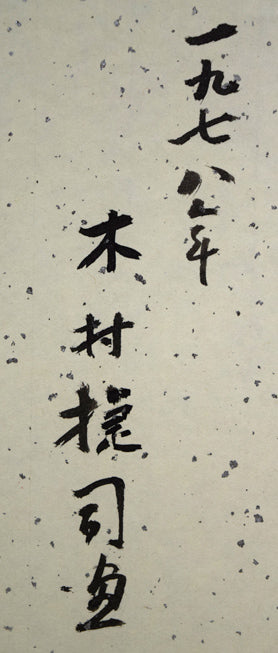 一九七八年
木村捷司画